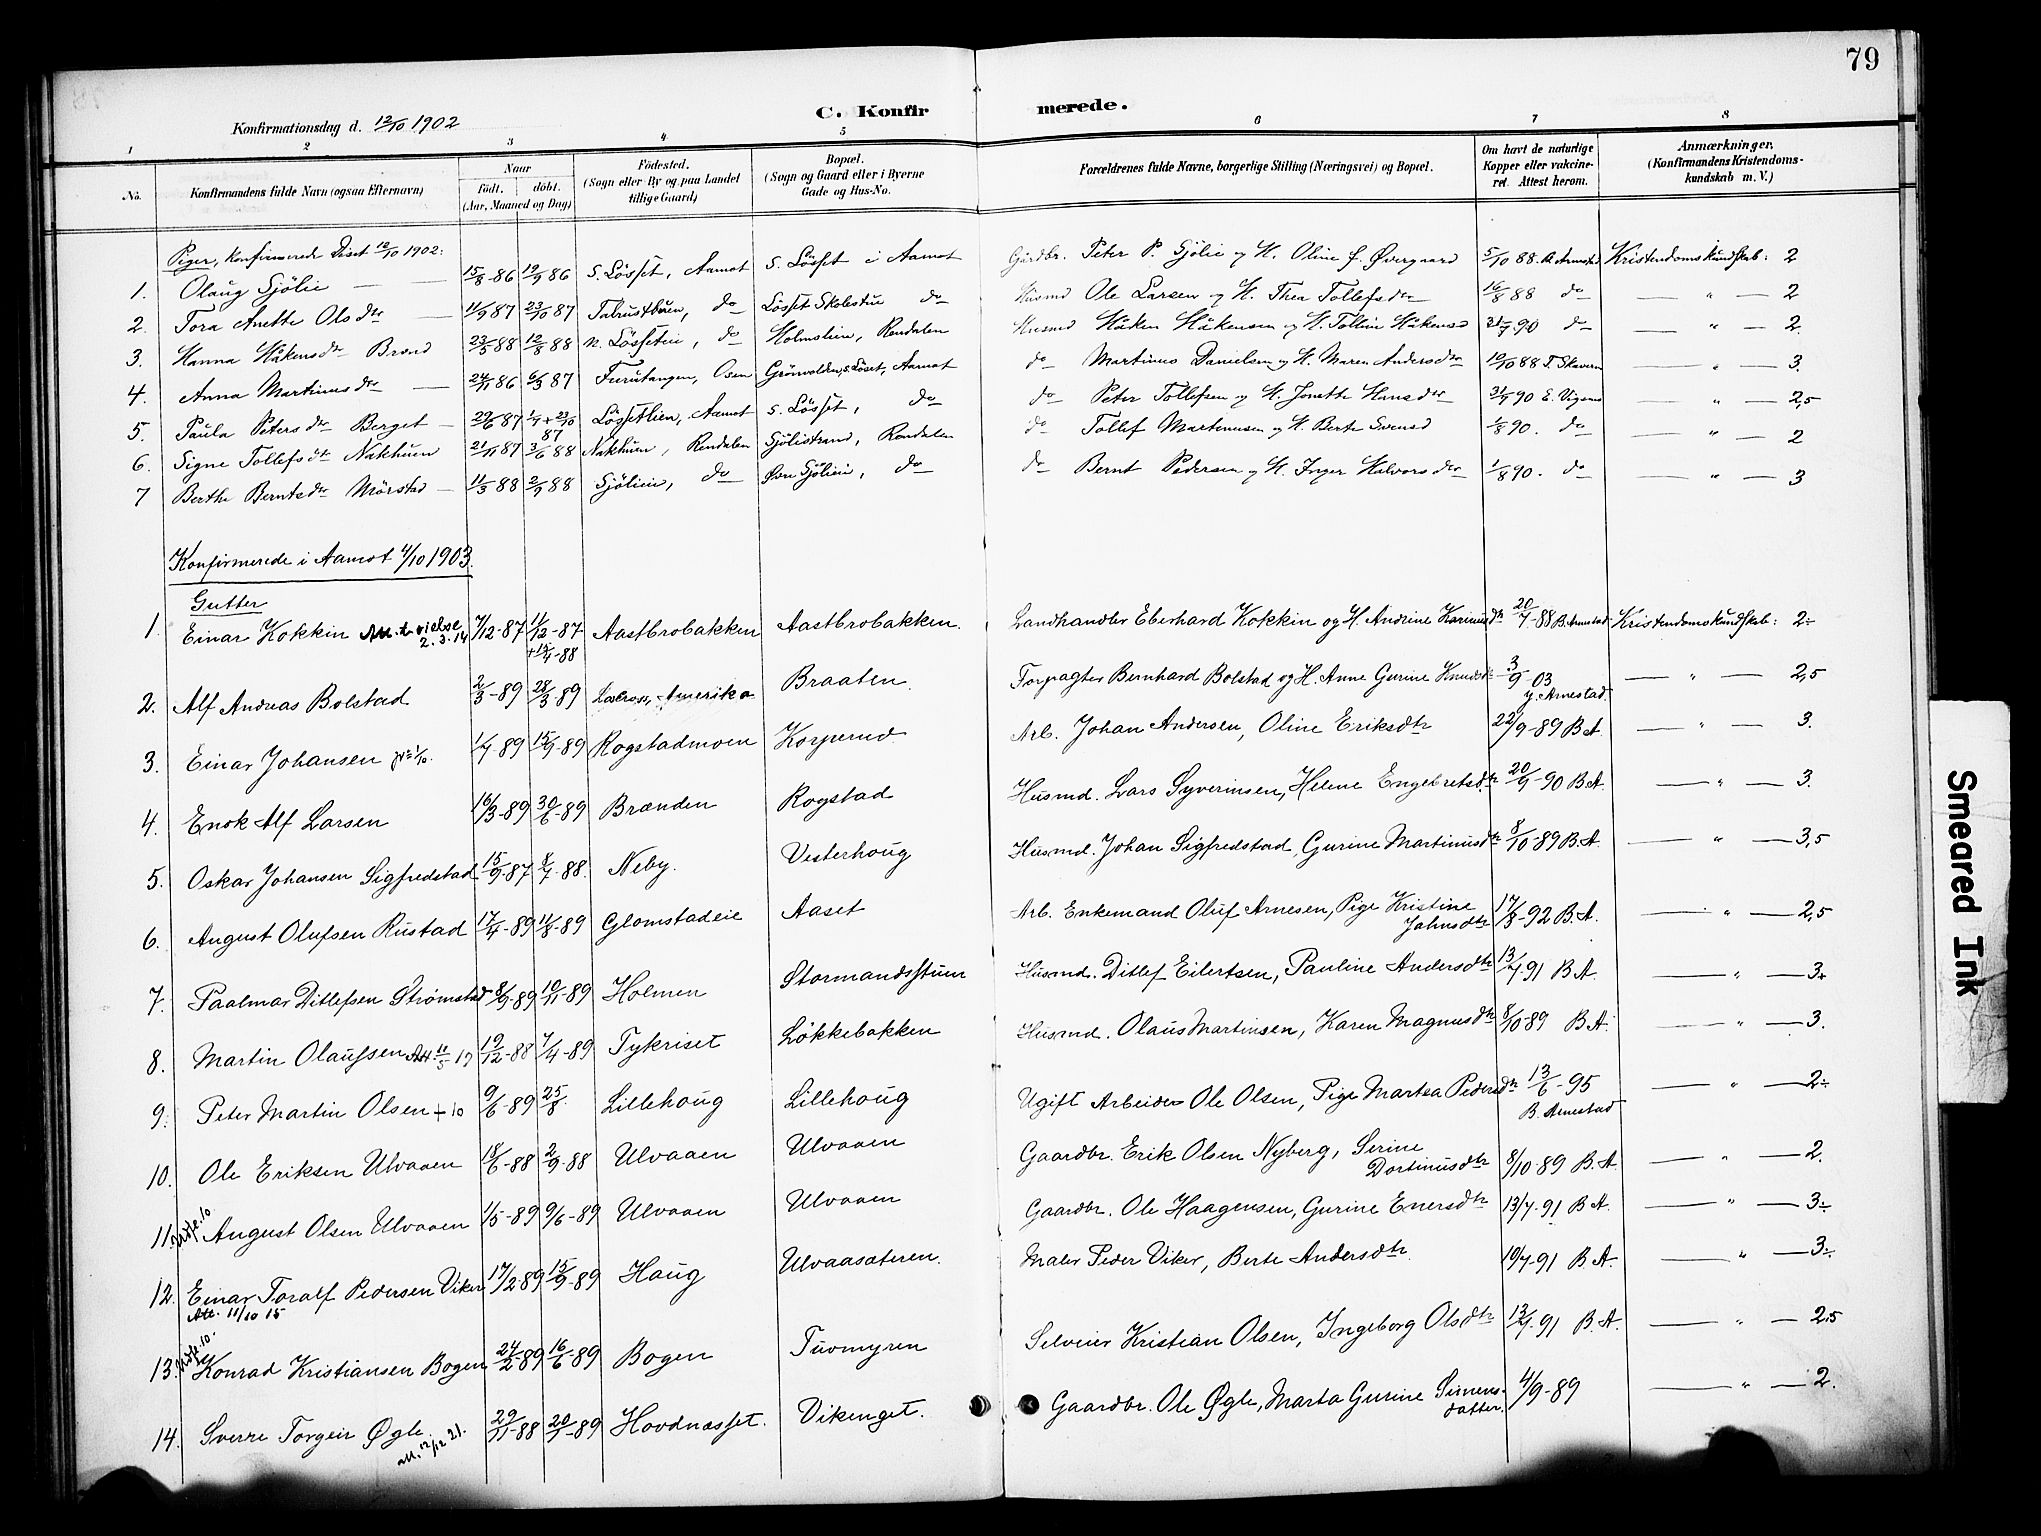 79
C. Konfirmerede.
Konfirmationsdag d. 12/10 1902
1 2 3 4 5 6 7 8
No. Konfirmandens fulde Navn (ogsaa Efternavn) Naar født. døbt. (Aar, Maaned og Dag) Fødested. (Sogn eller By og paa Landet tillige Gaard) Bopæl. (Sogn og Gaard eller i Byerne Gade og Hus-No. Forældrenes fulde Navne, borgerlige Stilling (Næringsvei) og Bopæl. Om havt de naturlige Kopper eller vakcineret. Attest herom. Anmærkninger. (Konfirmandens Kristendomskundskab m. V.)
Piger, konfirmerede Deset 12/10 1902:
1. Olaug Sjölie 15/8-86 19/9 86 S. Lösset, Aamot S. Lösset i Aamot Gårdbr. Peter P. Sjölie og H. Oline f. Øvergaard 5/10 88. B. Arnestad Kristendomskundskab: 2
2. Tora Anette Olsdtr 11/9 87 23/10 87 do Lösset Skolestue do Husmd Ole Larsen og H. Thea Tollefsdtr 16/8 88 do — " — 2
3. Hanna Håkensdtr Brænd 23/5 88 12/8 88 N. Lösseteie, do Holmsteien, Rendalen Husmd Håken Håkensen og H. Tolline Håkensd 21/7 90 do — " — 2.
4. Anna Martinusdtr 24/11 86 6/3 87 Furutangen, Osen Grönvolden, S. Löset, Aamot do Martinus Danielsen og H. Maren Andersdtr 10/10 88 T. Skavern — " — 3.
5. Paula Petersdtr Berget 29/6 87 1/7 + 23/10 87 Lössetlien, Aamot S. Lösset, do do Peter Tollefsen og H. Jonette Hansdtr 31/7 90 E. Vigsnes — " — 2,5
6. Signe Tollefsdtr Nakhuen 21/11 87 3/6 88 Nakhuen, Rendalen Sjölistrand, Rendalen do Tollef Martenusen og H. Berte Svensd 1/8 90. do — " — 2
7 Berthe Berntsdtr Mörstad 11/3 88 2/9 88 Sjölien, do Øvre Sjölien, do do Bernt Pedersen og H. Inger Halvorsdtr 1/8 90. do — " — 3
Konfirmerede i Aamot 4/10 1903.
Gutter
1. Einar Kokkin Att. t. vielse 2.3.14 7/12-87 11/12-87 + 15/4-88 Aastbrobakken Aastbrobakken. Landhandler Eberhard Kokkin og H. Andrine Karinusdtr 20/7-88 B. Arnestad Kristendomskundskab: 2÷
2. Alf Andreas Bolstad 2/3-89 28/3-89 Lacross, Amerika Braaten. Forpagter Bernhard Bolstad og H. Anne Gurine Knudsdtr 3/9-03 J. Arnestad — " — 2,5
3. Einar Johansen 1/7-89 15/9-89 Rogstadmoen Korperud Arb. Johan Andersen, Oline Eriksdtr 22/9-89 B.A. — " — 3.
4. Enok Alf Larsen 16/3-89 30/6-89 Brænden Rogstad Husmd. Lars Syverinsen, Helene Engebretsdtr 20/9-90 B.A. — " — 3.
5. Oskar Johansen Sigfredstad 15/9-87 8/7-88. Neby. Vesterhoug Husmd. Johan Sigfredstad, Gurine Martinusdtr 8/10-89 B.A. — " — 3,5
6. August Olufsen Rustad 17/4-89 11/8-89 Glomstadeie Aaset Arb. Enkemand Oluf Arnesen, Pige Kristine Jahnsdtr 17/8-92 B.A. — " — 2,5
7. Paalmar Ditlefsen Strømstad 8/9-89 10/11-89 Holmen Stormandsstuen Husmd. Ditlef Eilertsen, Pauline Andersdtr 13/7-91 B.A. — " — 3+
8. Martin Olaussen Att. 11/5 17 19/12-88 7/4-89 Tykriset Løkkebakken Husmd. Olaus Martinsen, Karen Magnusdtr 8/10-89 B.A. — " — 3.
9. Peter Martin Olsen 9/6-89 25/8. Lillehoug Lillehoug Ugift Arbeider Ole Olsen, Pige Martea Pedersdtr 13/6-95 B. Arnestad — " — 2÷
10. Ole Eriksen Ulvaaen 18/6-88 2/9-88 Ulvaaen Ulvaaen Gaardbr. Erik Olsen Nyberg, Serine Dortinusdtr 8/10-89 B.A. — " — 2.
11. August Olsen Ulvaaen 1/5-89 9/6-89 Ulvaaen Ulvaaen Gaardbr. Ole Haagensen, Gurine Enersdtr 13/7-91 B.A. — " — 3÷
12. Einar Toralf Pedersen Viker Att. 11/10 15 17/2-89 15/9-89 Haug Ulvaasæteren. Maler Peder Viker, Berte Andersdtr. 10/7-91 B.A. — " — 3÷
13. Konrad Kristiansen Bogen 24/2-89 16/6-89 Bogen Tuvmyren Selveier Kristian Olsen, Ingeborg Olsdtr 13/7-91 B.A. — " — 2,5
14. Sverre Torgeir Øgle. att. 12/12 21. 29/11-88 20/1-89 Hovdnæsset. Vikenget. Gaardbr. Ole Øgle, Marta Gurine Simensdatter. 4/9-89 — " — 2.
Smeared Ink